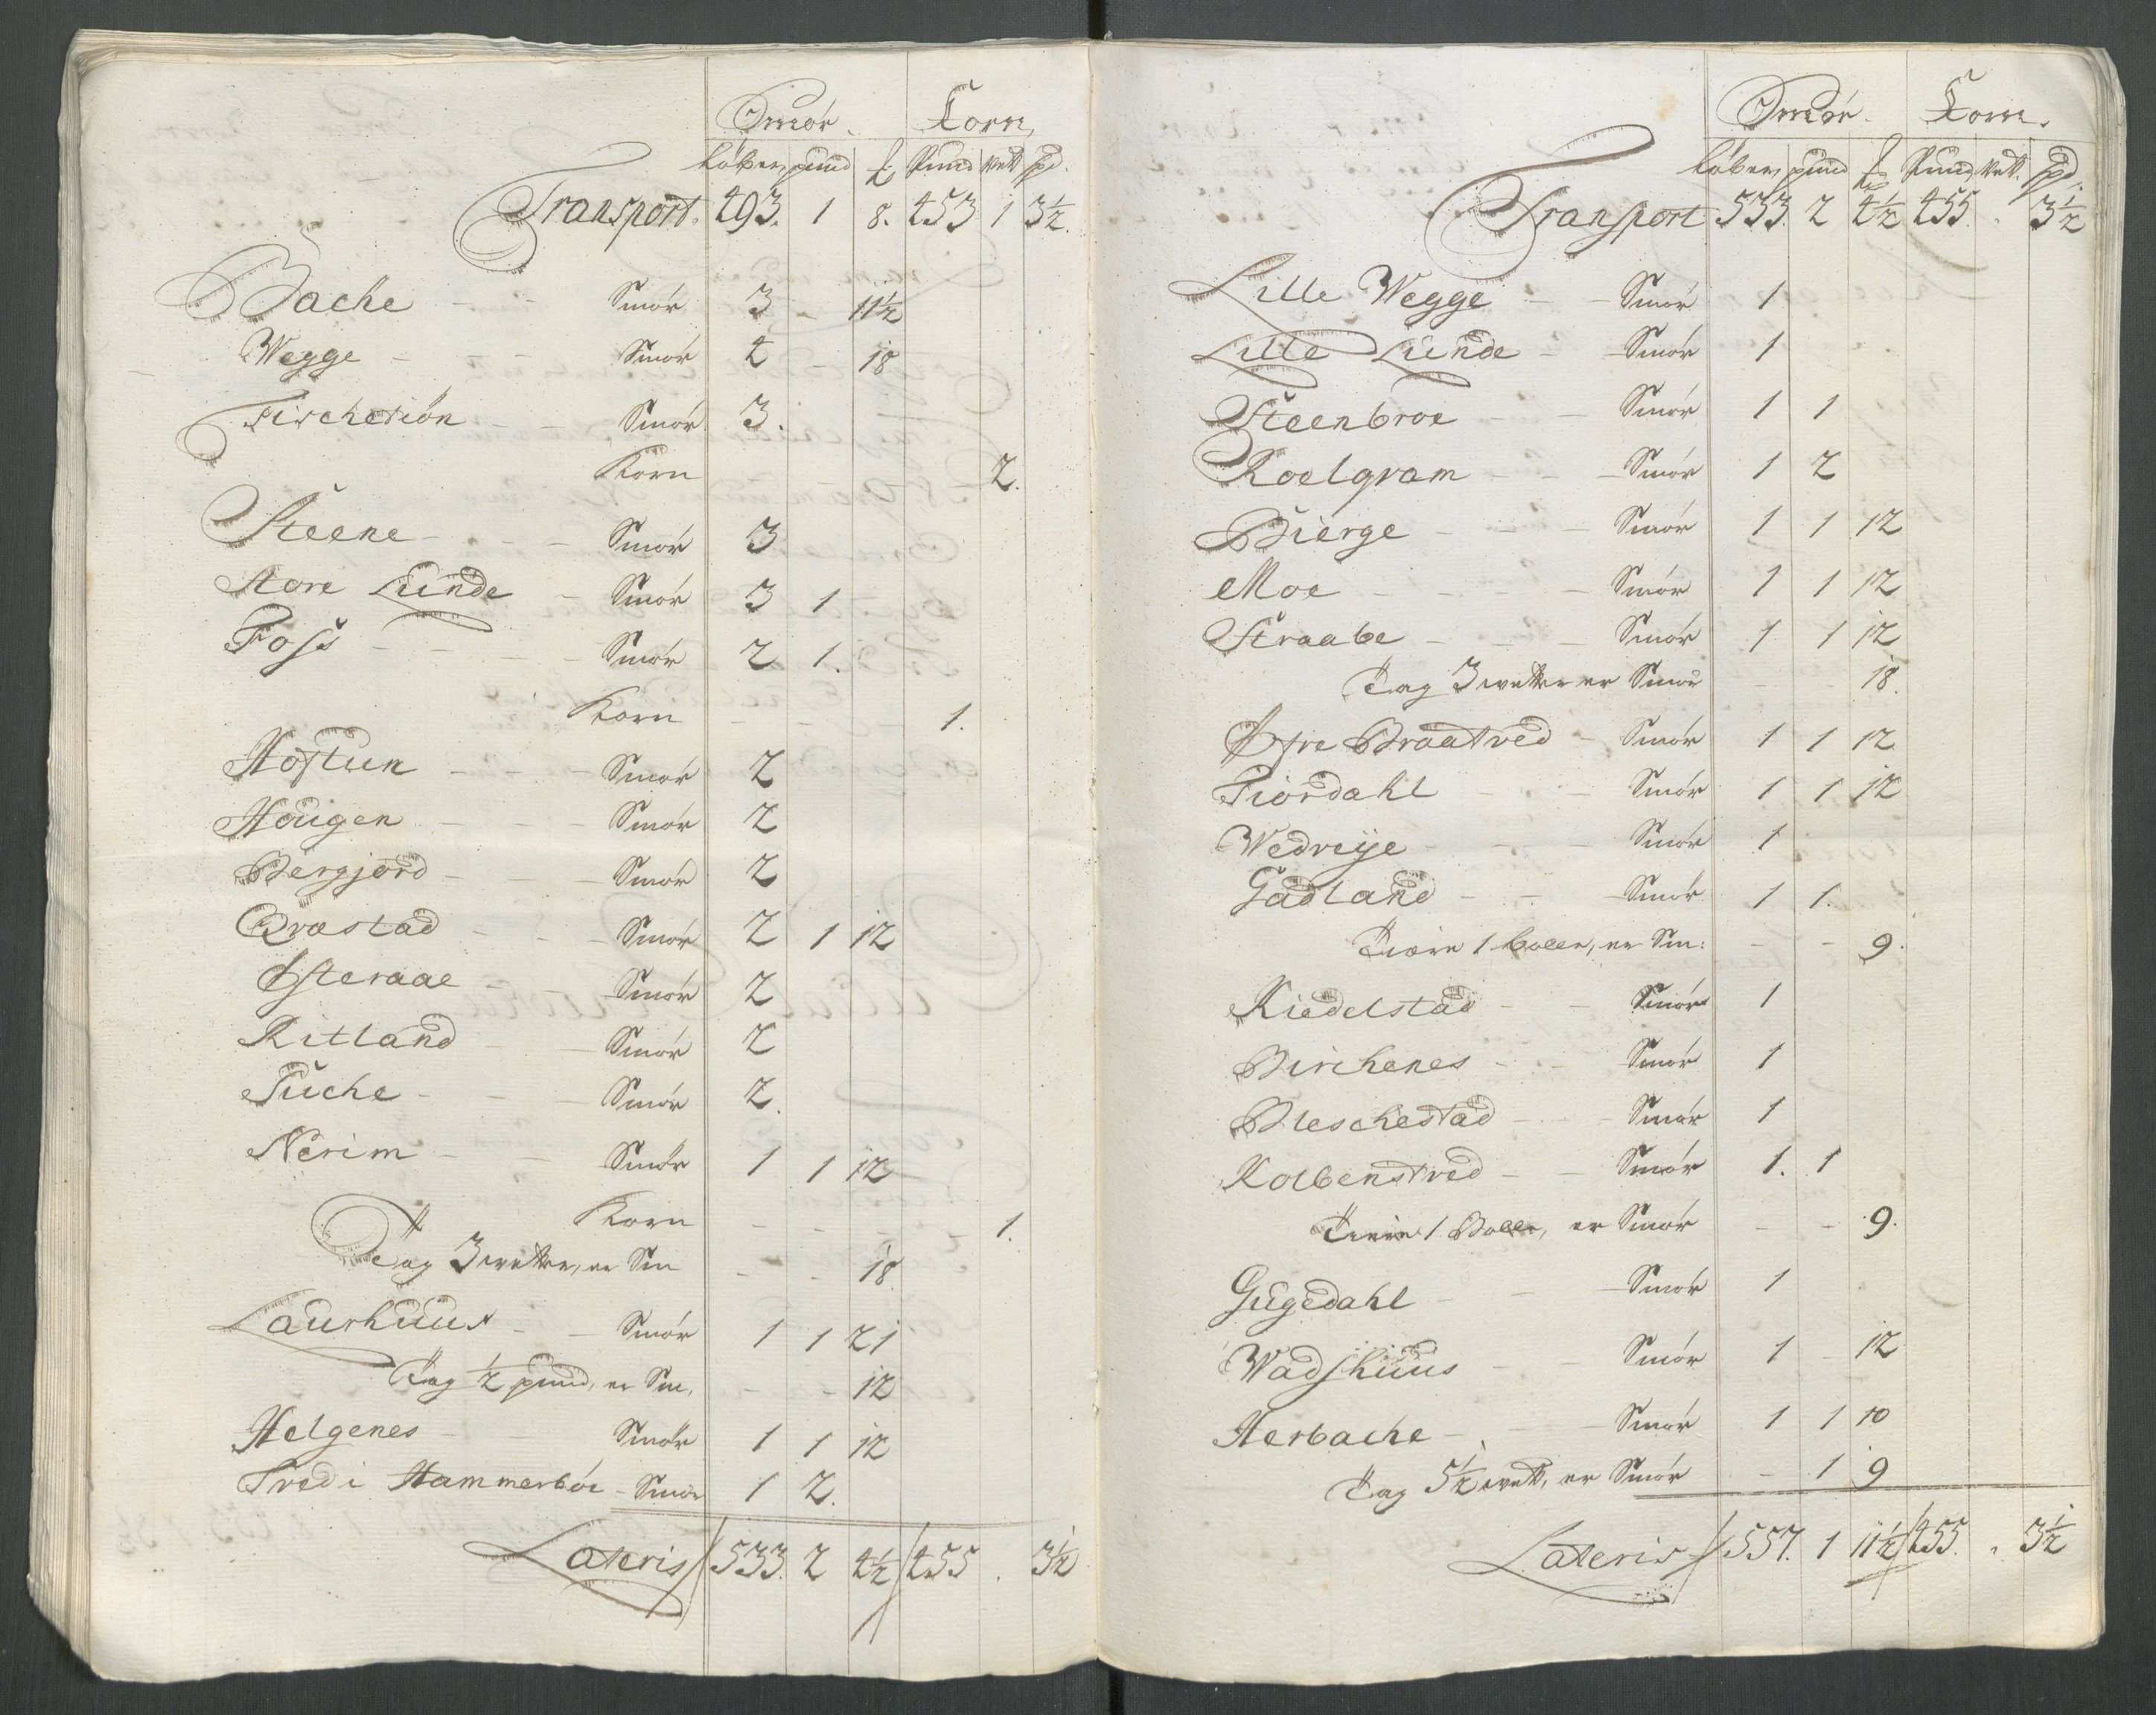 Smör. Korn,
löber, pund ℔ Pund Vett spd.
Transport. 493. 1 8. 453 1 3½.
Bache - - Smör 3 - 11½
Wegge - - - Smör 4 - 18
Fischetiön - - Smör 3.
Korn 2.
Steene - - - Smör 3
Store Lünde - Smör 3 1
Foss - - - - Smör 2 1.
Korn - - - 1.
Høftun - - - Smör 2
Høugen - - - Smör 2
Bergjord - - - Smör 2
Qvæstad - - - Smör 2 1 12
Østeraae - - Smör 2
Ritland - - Smör 2
Tüche - - - Smör 2.
Nerim - - Smör 1 1 12
Korn - - - - 1.
Tag 3 wetter, er Sm - - 18
Laurhüüs - - Smör 1 1 21
Tag ½ pund, er Sm, - - 12
Helgenes - - Smör 1 1 12
Tved i Hammerböe - Smör 1 2.
Lateris 533. 2 4½ 455 . 3½
Smör. Korn.
löber, pund ℔ Pund, Vett. spd.
Transport 533. 2 4½ 455. . 3½
Lille Wegge - - Smör 1
Lille Lünde - - Smör 1
Steenbroe - - Smör 1 1
Roelqvam - - Smör 1 2
Bierge - - - Smör 1 1 12
Moe - - - - Smör 1 1 12
Straabe - - - Smör 1 1 12
Tag 3 wetter er Smör - - 18.
Øfre Braatved - Smör 1 1 12
Fiordahl - - - Smör 1 1 12
Wedreÿe - - - Smör 1
Gadland - - - Smör 1 1.
Tiære 1 boller, er Sm: - - 9.
Kiedelstad - - Smör 1
Birchenes - - - Smör 1
Bleschestad - - Smör 1
Kolbenstved - - Smör 1. 1
Tiære 1 Boller, er Smör - - 9.
Gügedahl - - Smör 1
Wadshüüs - - Smör 1 12
Herbache - - - Smör 1 1 10
Tag 5½ wett, er Smör - 1 9
Lateris 557. 1 11½ 455. . 3½